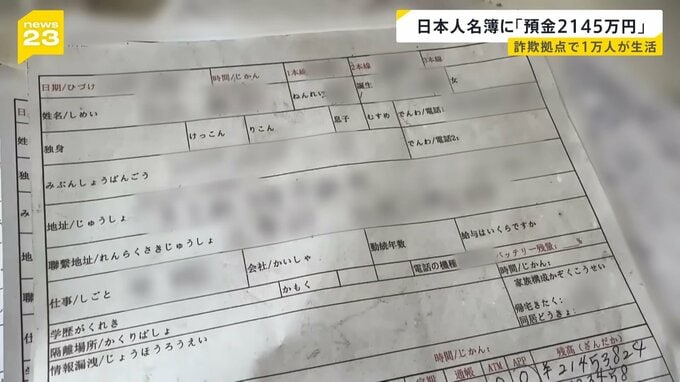 news23
日本人名簿に「預金2145万円」
詐欺拠点で1万人が生活
日期/ひづけ
時間/じかん
1本線
2本線
3本線
姓名/しめい
ねんれい
誕生
女
独身
けっこん
りこん
息子
むすめ
でんわ/電話1
でんわ/電話2:
みぶんしょうばんごう
地址/じゅうしょ
聯繫地址/れんらくさきじゅうしょ
会社/かいしゃ
勤続年数
給与はいくらですか
仕事/しごと
かもく
電話の機種
バッテリー残量:
%
学歴がくれき
時間/じかん:
家族構成かぞくこうせい
隔離場所/かくりばしょ
帰宅きたく:
情報漏洩/じょうほうろうえい
同居どうきょ:
時間/じかん:
通帳
ATM
APP
残高(ざんだか)
¥21453824